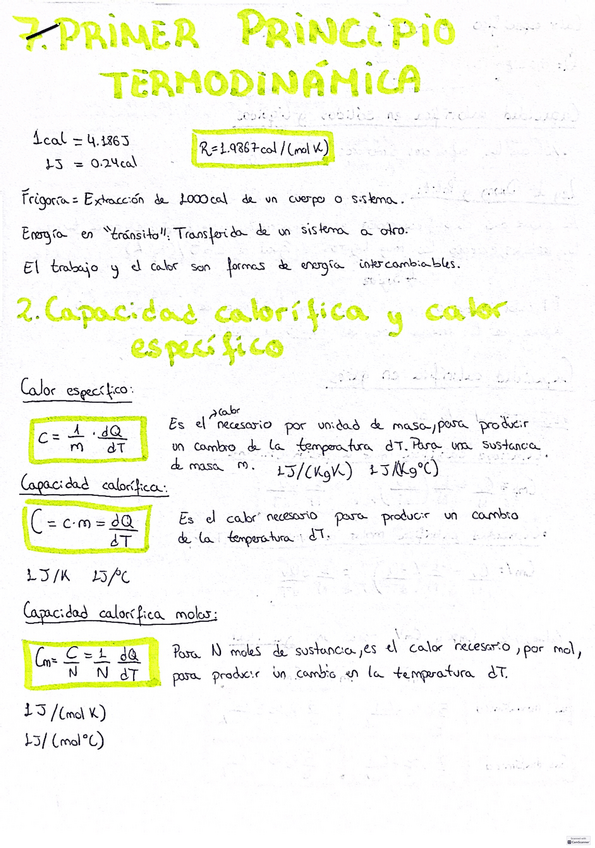 7. PRIMER PRINCIPIO
TERMODINÁMICA
1cal = 4.186J
1J = 0.24cal
R=1.9867cal/(mol K)
Frigoría = Extracción de 1000cal de un cuerpo o sistema.
Energía en "tránsito": Transferida de un sistema a otro.
El trabajo y el calor son formas de energía intercambiables.
2. Capacidad calorífica y calor
específico
Calor específico:
c = 1/m · dQ/dT
→calor
Es el necesario por unidad de masa, para producir
un cambio de la temperatura dT. Para una sustancia
de masa m. 1J/(KgK) 1J/(Kg°C)
Capacidad calorífica:
C = c·m = dQ/dT
Es el calor necesario para producir un cambio
de la temperatura dT.
1J/K 1J/°C
Capacidad calorífica molar:
Cm = C/N = 1/N dQ/dT
Para N moles de sustancia, es el calor necesario, por mol,
para producir un cambio en la temperatura dT.
1J/(mol K)
1J/(mol°C)